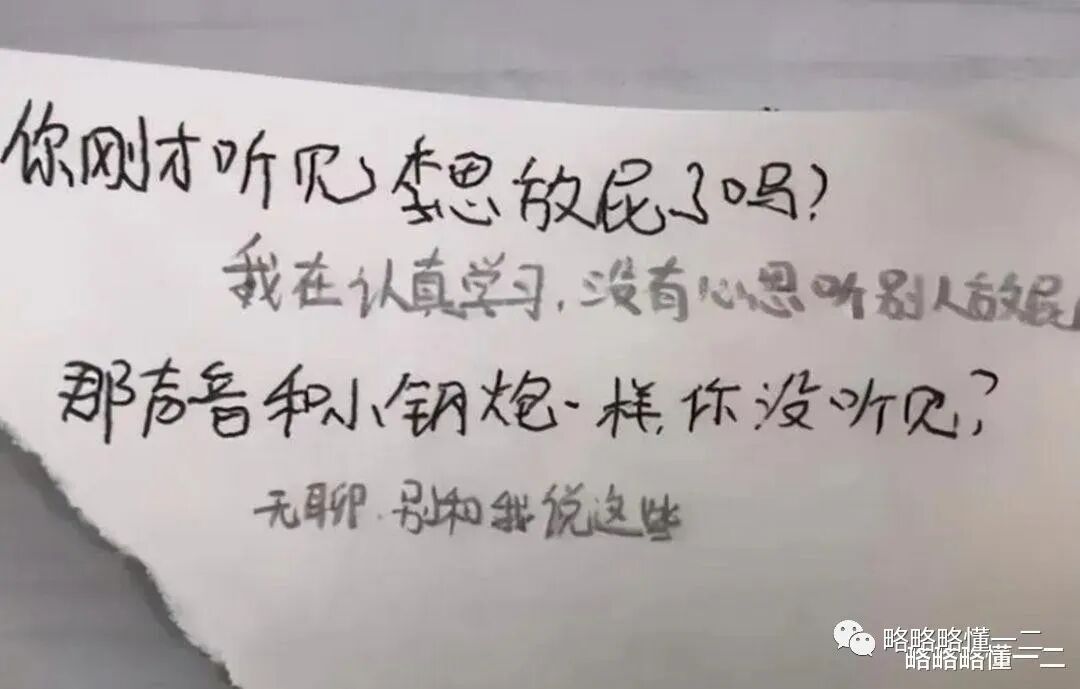 你刚才听见李思放屁了吗?
我在认真学习,没有心思听别人放屁
那声音和小钢炮一样,你没听见?
无聊.别和我说这些
略略略懂一二
略略略懂一二